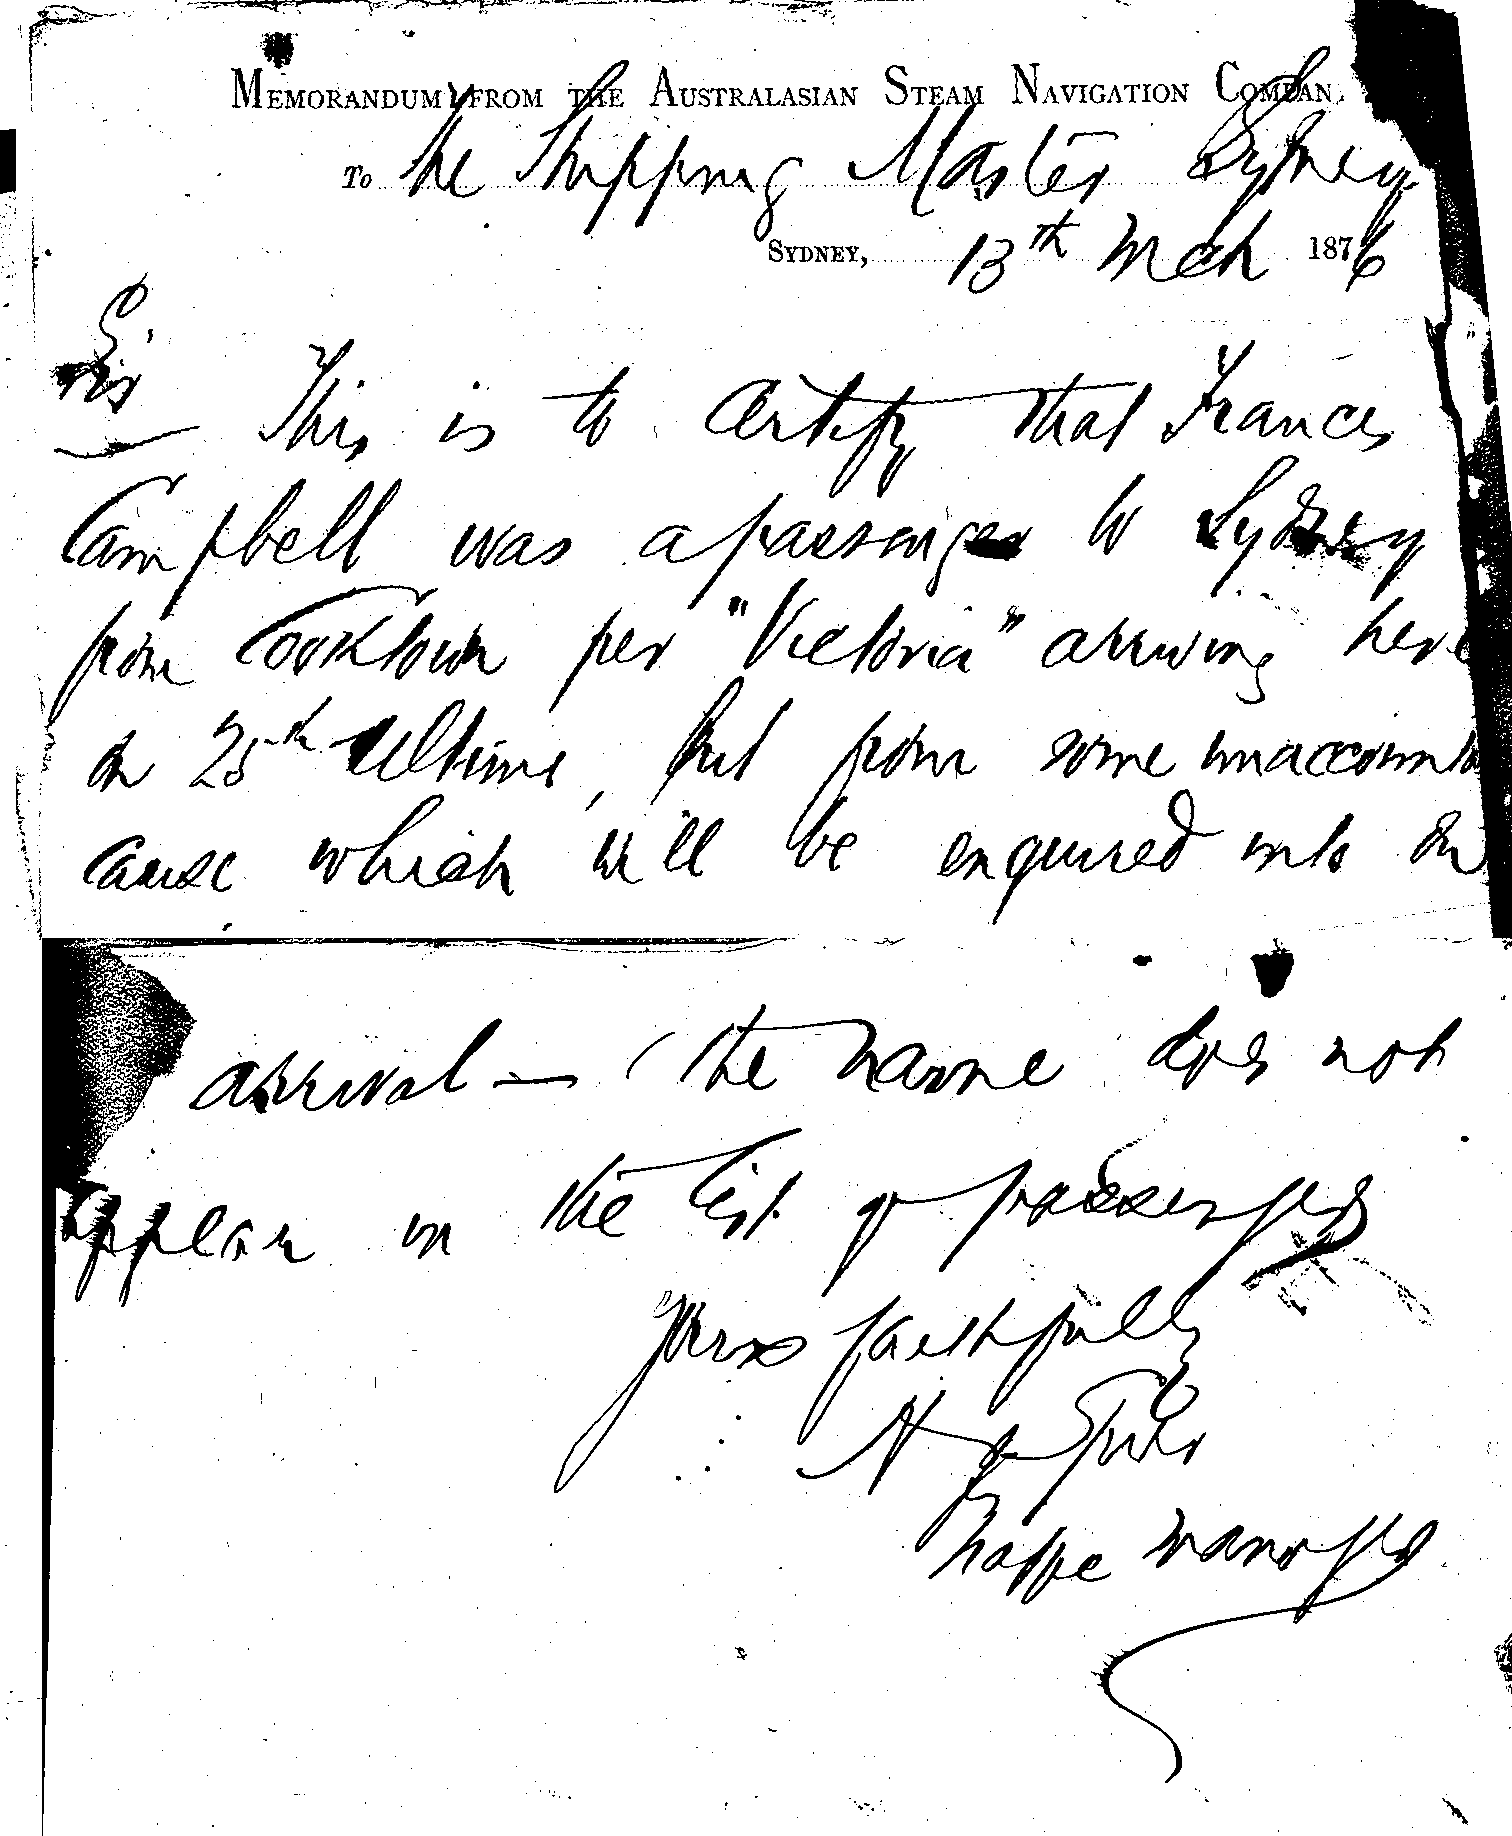 MEMORANDUM FROM THE AUSTRALASIAN STEAM NAVIGATION COMPAN
To the Shipping Master Sydney
SYDNEY, 13th Mch 1876
Sir
This is to certify that Frances
Campbell was a passenger to Sydney
from Cooktown per "Victoria" arriving here
on 25th Ultimo, but from some unaccounta
cause which will be enquired into on
arrival — the name does not
appear in the list of passengers
Yours faithfully
manager